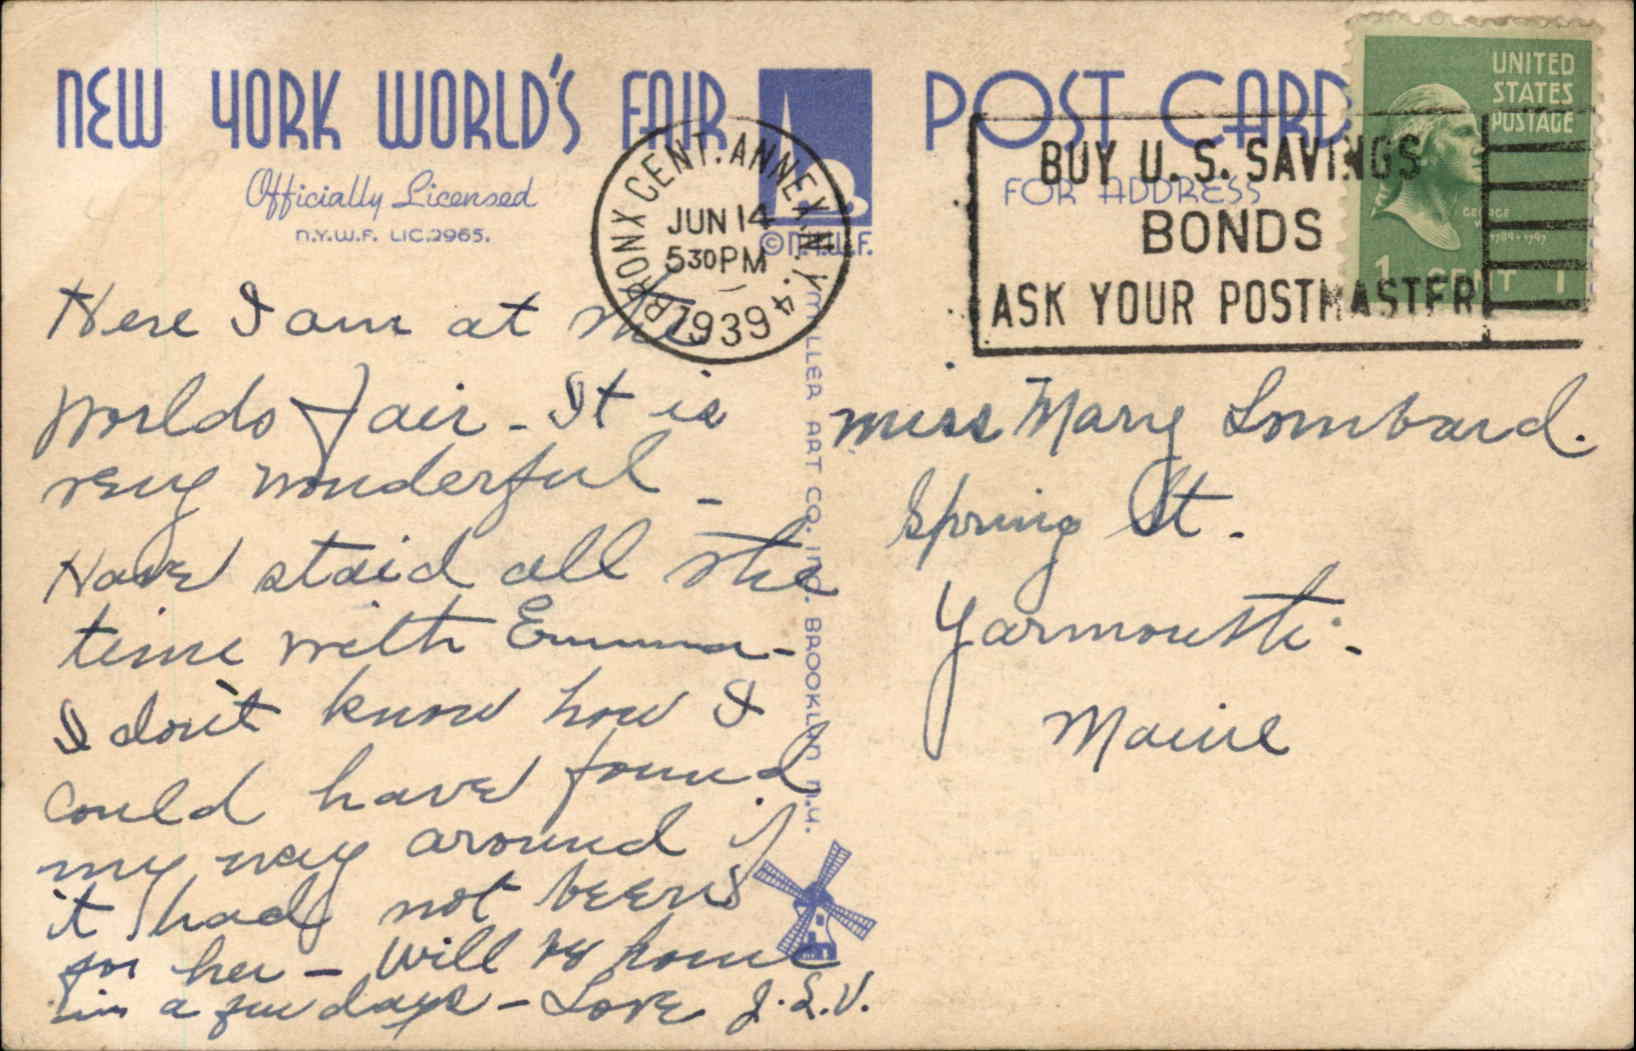 NEW YORK WORLD'S FAIR
Officially Licensed
N.Y.W.F. LIC.2965.
POST CARD
FOR ADDRESS
UNITED
STATES
POSTAGE
GEORGE
1 CENT 1
BRONX CENT. ANNEX. N.Y. 4
JUN 14
530PM
1939
BUY U.S. SAVINGS
BONDS
ASK YOUR POSTMASTER
© N.Y.W.F.
Here I am at the
Worlds Fair - It is
very wonderful -
Have staid all the
time with Emma -
I don't know how I
could have found
my way around if
it had not been
for her - Will be home
in a few days - Love J.L.V.
MILLER ART CO. INC. BROOKLYN N.Y.
Miss Mary Lombard.
Spring St.
Yarmouth.
Maine